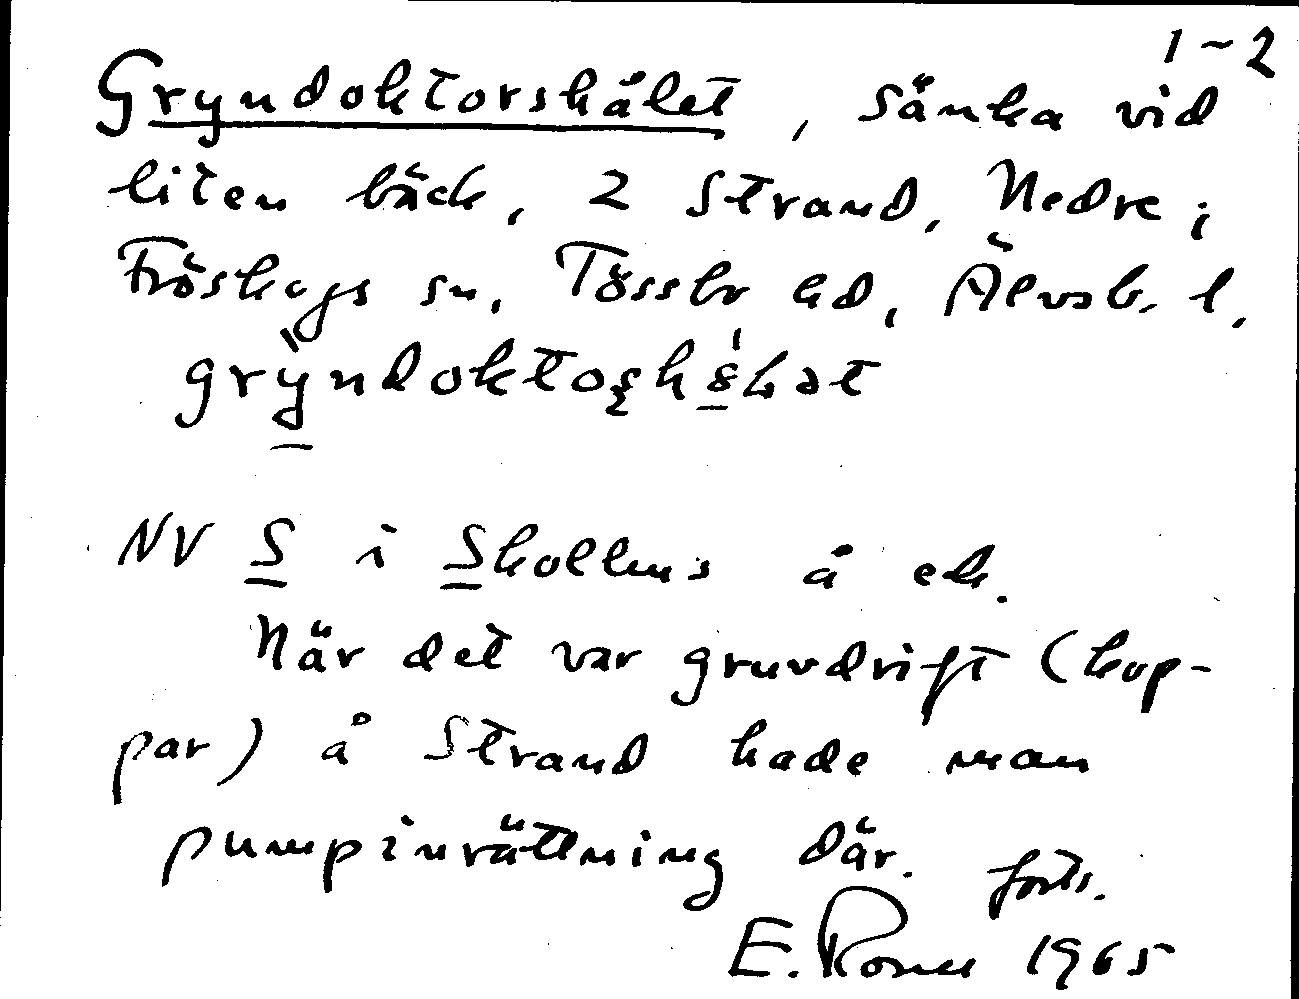 1-2
Gryndoktorshålet, sänka vid
liten bäck, 2 Strand, Nedre i
Fröskogs sn, Tössbo hd, Älvsb. l.
NV S i Skollens å ek.
När det var gruvdrift (kop-
par) å Strand hade man
pumpinrättning där. forts.
E. 1965